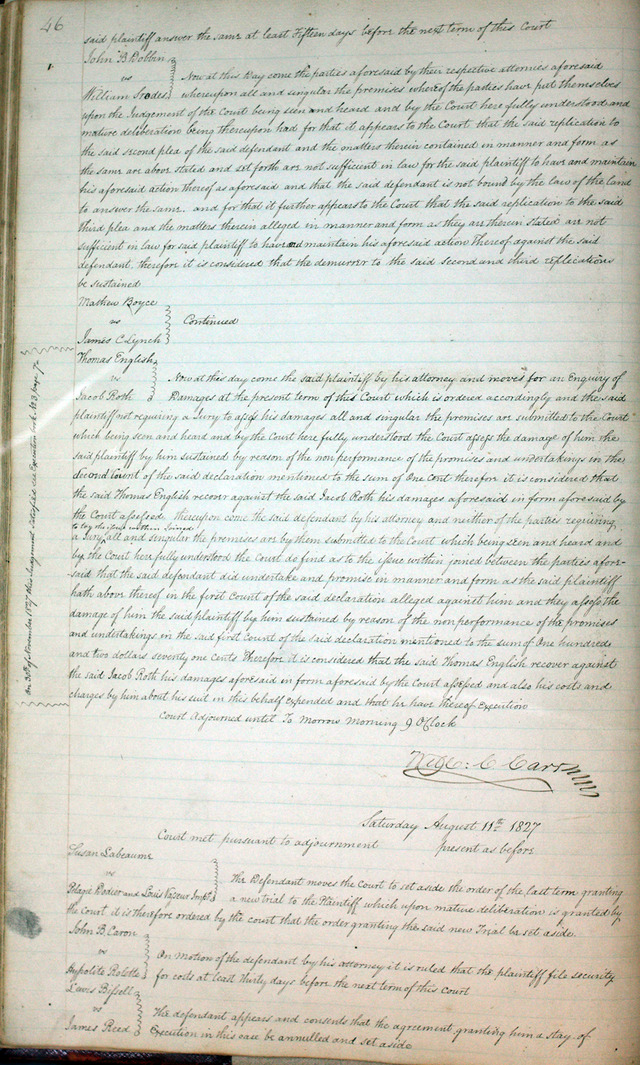 46
said plaintiff answer the same at least Fifteen days before the next term of this Court
John B Dobbin
vs
William Srodes
Now at this Day come the parties aforesaid by their respective attornies aforesaid
whereupon all and singular the premises whereof the parties have put themselves
upon the Judgement of the Court being seen and heard and by the Court here fully understood and
mature deliberation being thereupon had for that it appears to the Court that the said replication to
the said second plea of the said defendant and the matters therein contained in manner and form as
the same are above stated and set forth are not sufficient in law for the said plaintiff to have and maintain
his aforesaid action thereof as aforesaid and that the said defendant is not bound by the law of the land
to answer the same and for that it further appears to the Court that the said replication to the said
third plea and the matters therein alleged in manner and form as they are therein stated are not
sufficient in law for said plaintiff to have and maintain his aforesaid action thereof against the said
defendant, therefore it is considered that the demurrer to the said second and third replications
be sustained
Mathew Boyce
vs
James C Lynch
Continued
Thomas English
vs
Jacob Roth
Now at this day come the said plaintiff by his attorney and moves for an Enquiry of
Damages at the present term of this Court which is ordered accordingly and the said
plaintiff not requiring a Jury to assess his damages all and singular the premises are submitted to the Court
which being seen and heard and by the Court here fully understood the Court assess the damage of him the
said plaintiff by him sustained by reason of the non performance of the promises and undertakings in the
second Count of the said declaration mentioned to the sum of one cent therefore it is considered that
the said Thomas English recover against the said Jacob Roth his damages aforesaid in form aforesaid by
the Court assessed. thereupon come the said defendant by his attorney and neither of the parties requiring
to try the issue within Joined
a Jury all and singular the premises are by them submitted to the Court which being seen and heard and
by the Court here fully understood the Court do find as to the issue within joined between the parties afore-
said that the said defendant did undertake and promise in manner and form as the said plaintiff
hath above thereof in the first Count of the said declaration alleged against him and they assess the
damage of him the said plaintiff by him sustained by reason of the non performance of the promises
and undertakings in the said first Count of the said declaration mentioned to the sum of One hundred
and two dollars seventy one cents Therefore it is considered that the said Thomas English recover against
the said Jacob Roth his damages aforesaid in form aforesaid by the Court assessed and also his costs and
charges by him about his suit in this behalf expended and that he have thereof Execution
on 30th of November 1827 this Judgment satisfied see Execution book No 3 page 7
Court Adjourned until To Morrow Morning 9 O'Clock
C Carr
Saturday August 11th 1827
Court met pursuant to adjournment present as before
Susan Labeaume
vs
Pelagie Dodier and Louis Vasseur Impl.
The Defendant moves the Court to set aside the order of the last term granting
a new trial to the Plaintiff which upon mature deliberation is granted by
the Court it is therefore ordered by the court that the order granting the said new Trial be set aside.
John B. Caron
vs
Hypolite Rolette
On Motion of the defendant by his attorney it is ruled that the plaintiff file security
for costs at least thirty days before the next term of this Court
Lewis Bissell
vs
James Reed
The defendant appears and consents that the agreement granting him a stay of
Execution in this case be annulled and set aside